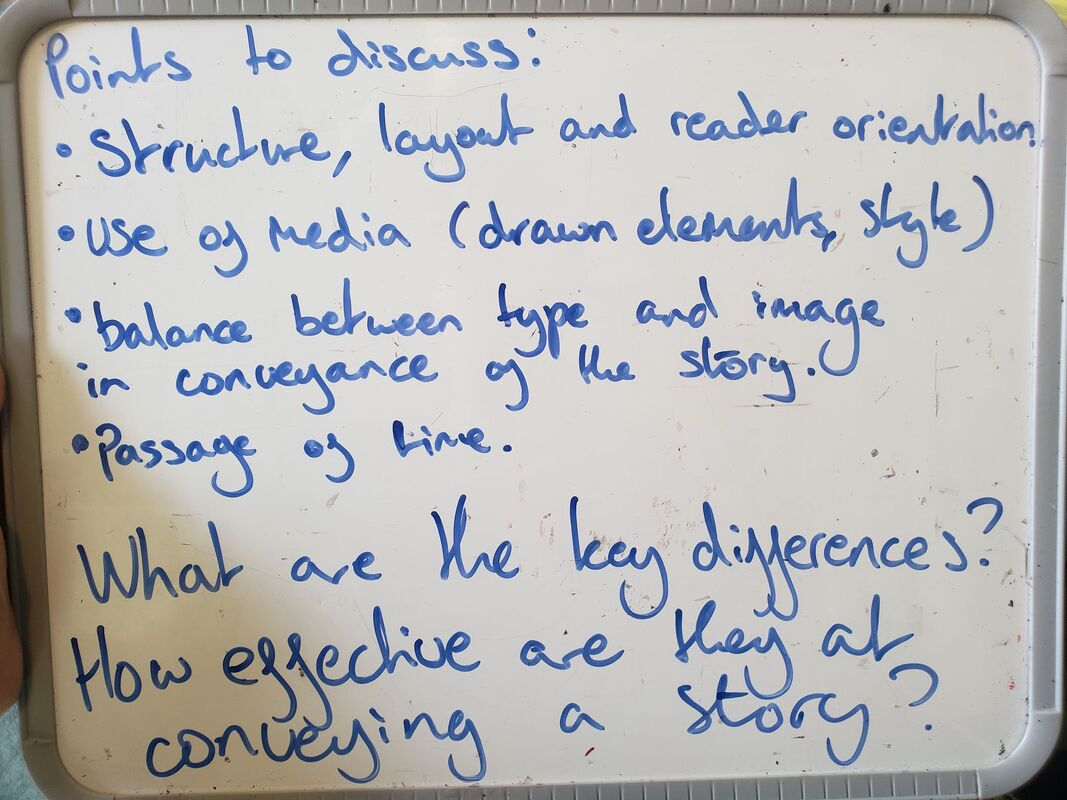 Points to discuss:
• Structure, layout and reader orientation.
• Use of Media (drawn elements, style)
• balance between type and image
in conveyance of the story.
• Passage of time.
What are the key differences?
How effective are they at
conveying a story?